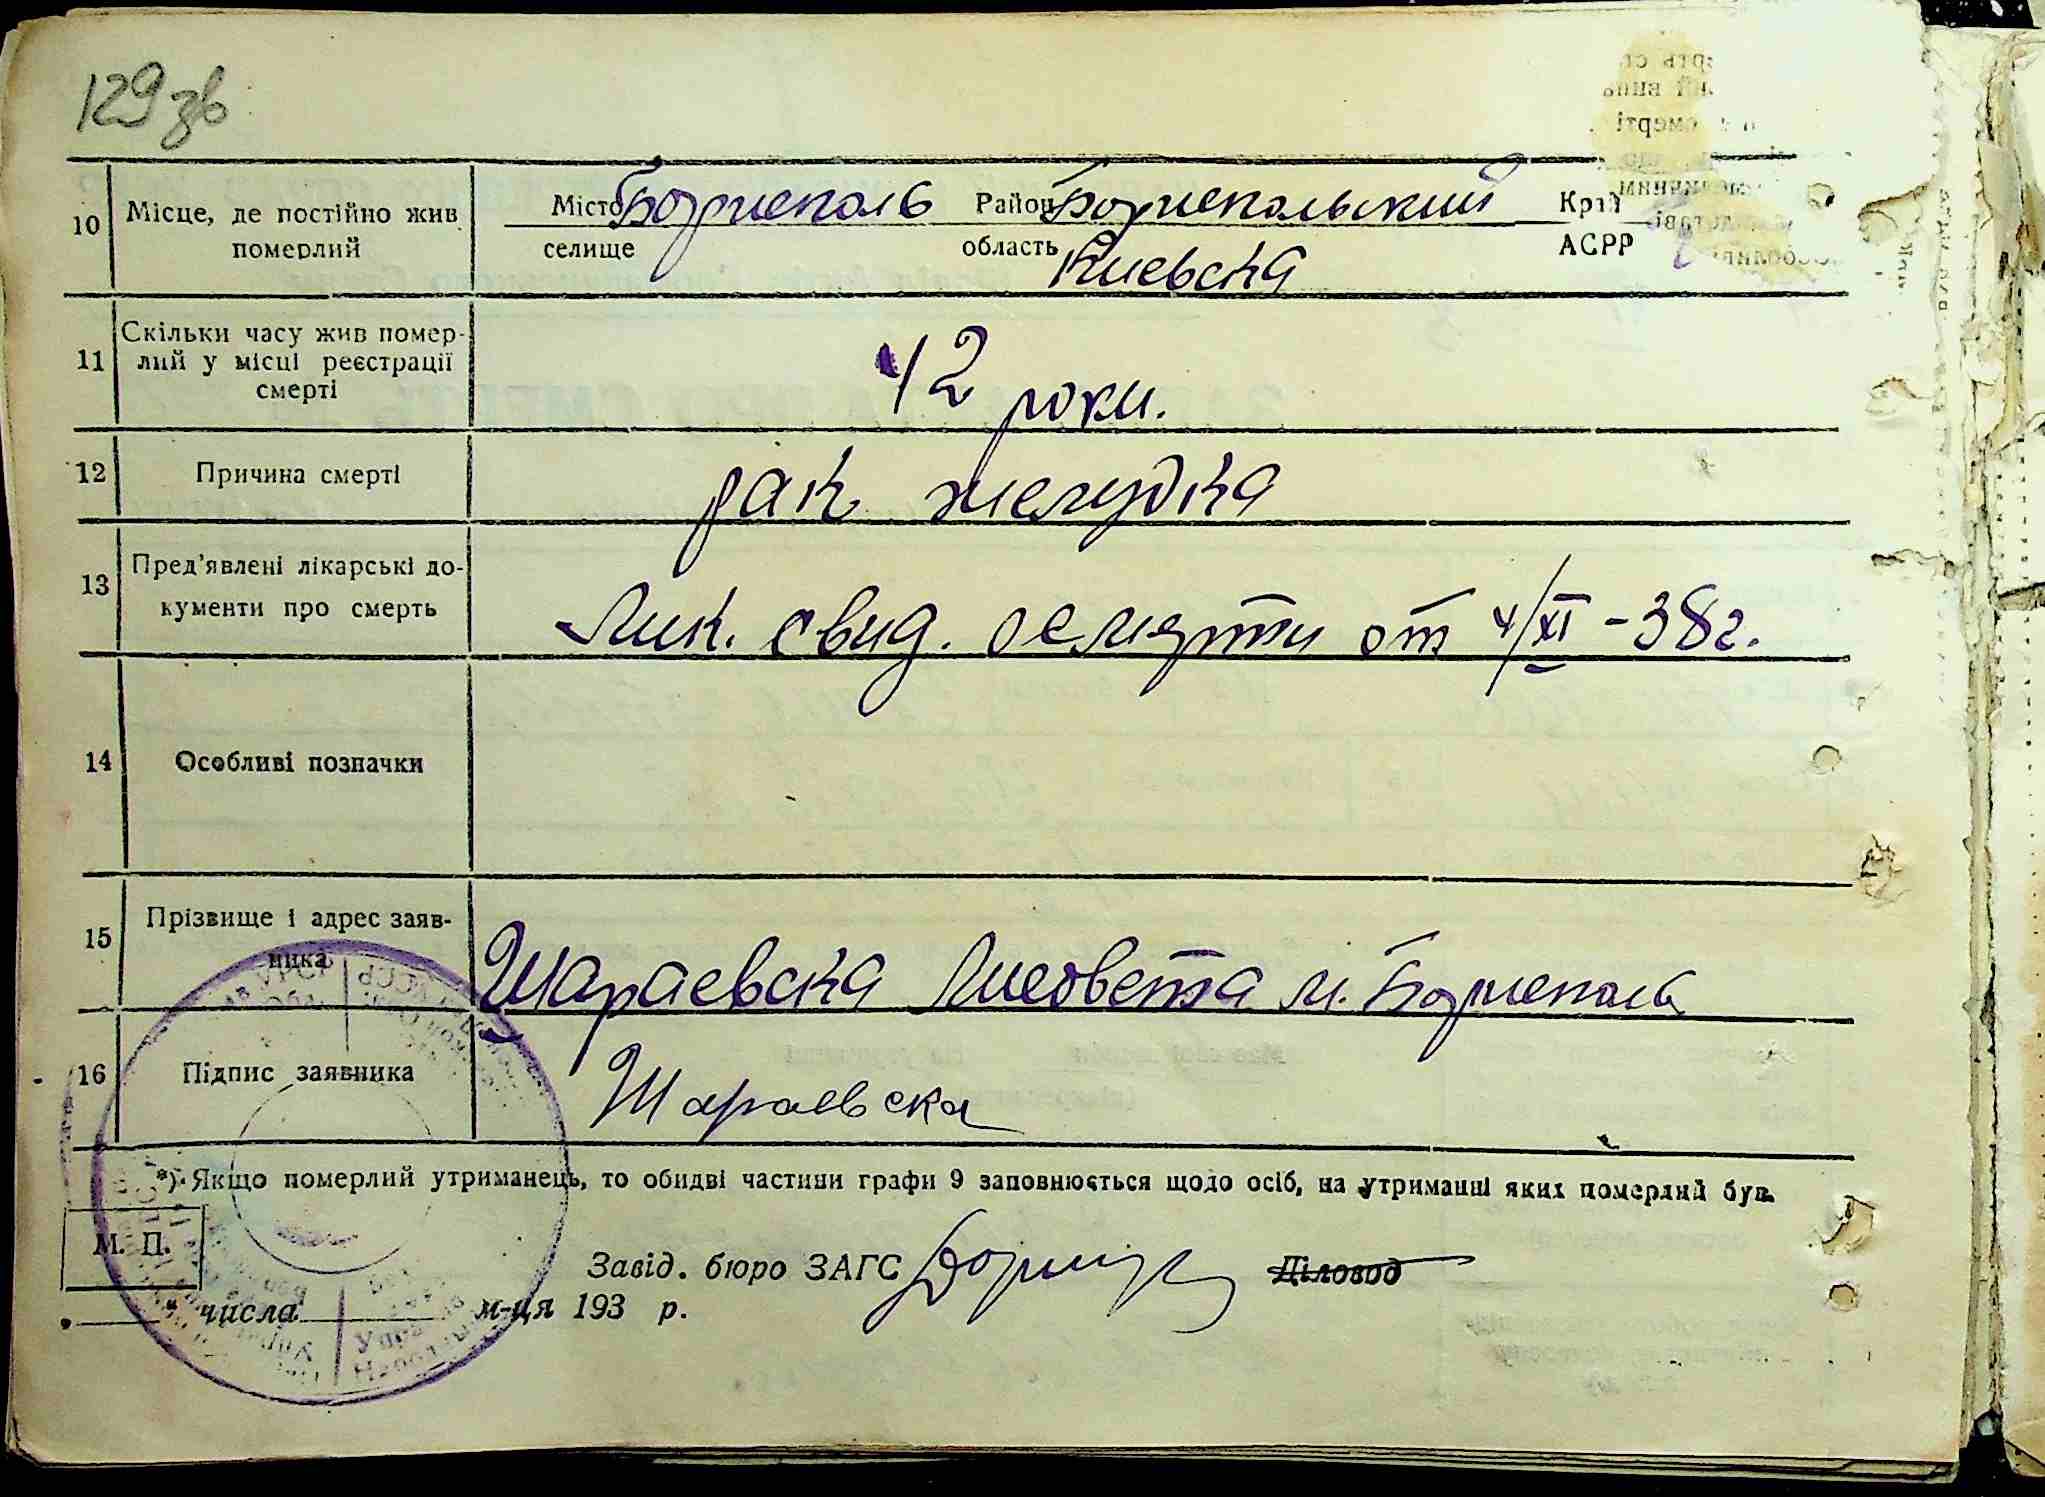 129 зв
10 Місце, де постійно жив померлий
Місто Борисполь Район Бориспольський Край
селище область Киевска АСРР
11 Скільки часу жив помер-
лий у місці реєстрації
смерті
42 роки.
12 Причина смерті рак желудка
13 Пред'явлені лікарські до-
кументи про смерть
Лик. свид. о смерти от 4/XI - 38 г.
14 Особливі позначки
15 Прізвище і адрес заяв-
ника
Шараевска Лисовета м. Борисполь
16 Підпис заявника Шараевска
*) Якщо померлий утриманець, то обидві частини графи 9 заповнюється щодо осіб, на утриманні яких померлий був.
М. П.
Завід. бюро ЗАГС Діловод
" числа м-ця 193 р.